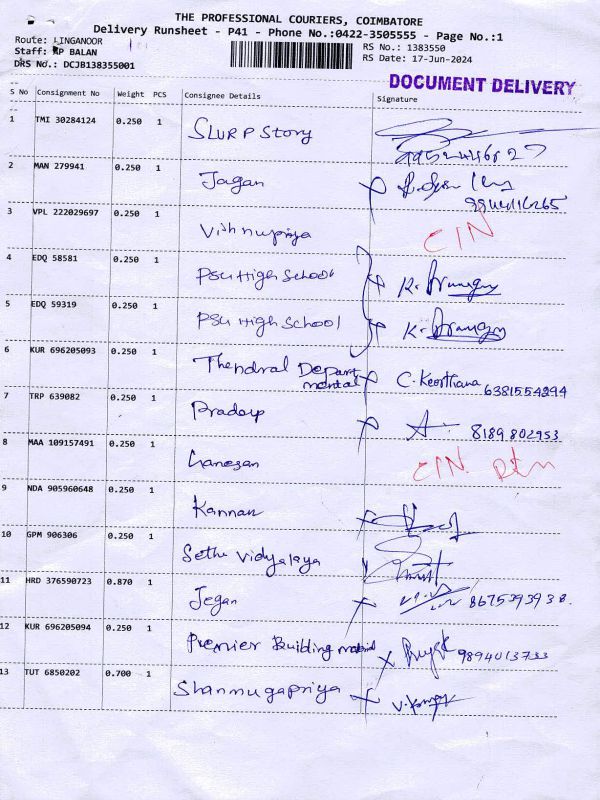 THE PROFESSIONAL COURIERS, COIMBATORE
Delivery Runsheet - P41 - Phone No.:0422-3505555 - Page No.:1
Route: LINGANOOR
RS No.: 1383550
Staff: KP BALAN
RS Date: 17-Jun-2024
DRS No.: DCJB138355001
DOCUMENT DELIVERY
S No Consignment No Weight PCS Consignee Details Signature
1 TMI 30284124 0.250 1 SLURP Story
2 MAN 279941 0.250 1 Jagan
9944116265
3 VPL 222029697 0.250 1 Vishnupriya CIN
4 EDQ 58581 0.250 1 PSU High School
5 EDQ 59319 0.250 1 PSU High School
6 KUR 696205093 0.250 1 Thendral Depart
mental C. Keerthana 6381554294
7 TRP 639082 0.250 1 Pradeep 8189802953
8 MAA 109157491 0.250 1 Ganesan CIN.
9 NDA 905960648 0.250 1 Kannan
10 GPM 906306 0.250 1 Sethu Vidyalaya
11 HRD 376590723 0.870 1 Jegan 8675393938.
12 KUR 696205094 0.250 1 Premier Building material 9894013733
13 TUT 6850202 0.700 1 Shanmugapriya